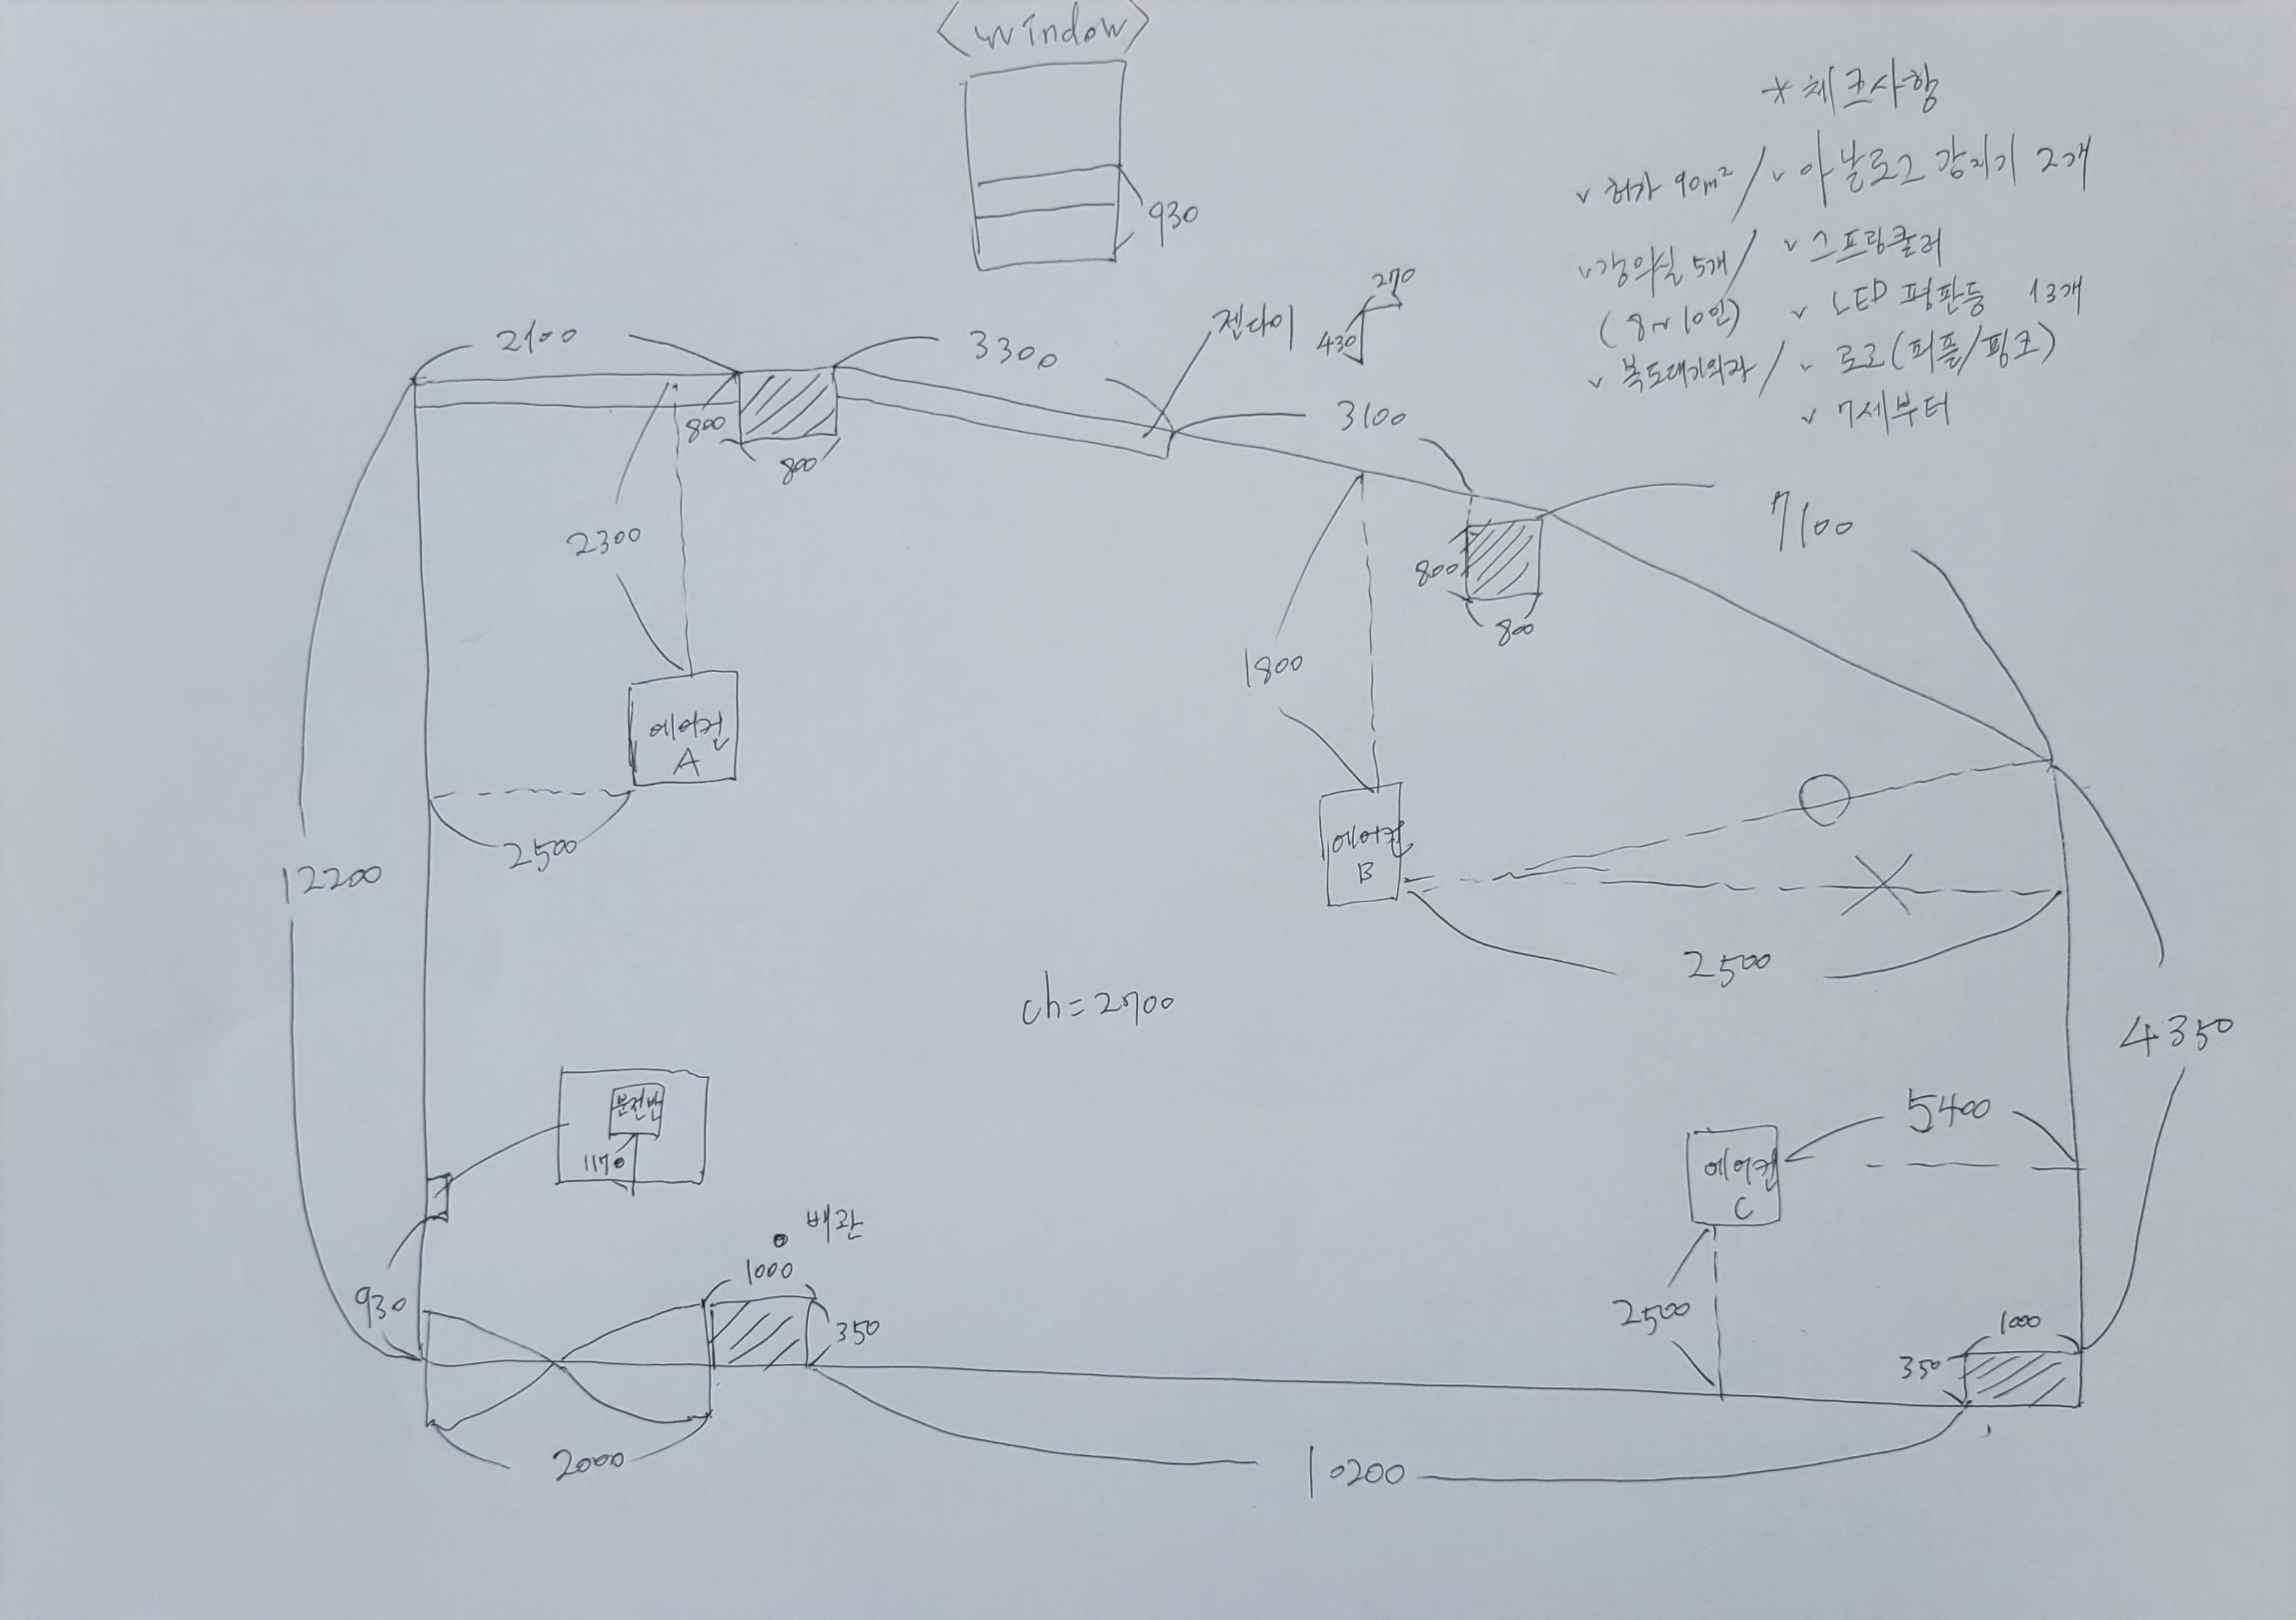 <window>
930
*체크사항
v 허가 90m² / v 아날로그 감지기 2개
v 강의실 5개 / v 스프링쿨러
(8~10인) v LED 평판등 13개
v 복도대기의자 / v 로고(퍼플/핑크)
v 7세부터
270
430
젠다이
2100
3300
3100
7100
800
800
800
800
2300
1800
에어컨
A
에어컨
B
2500
2500
12200
ch=2700
4350
5400
에어컨
C
2500
분전반
1170
930
배관
1000
350
1000
350
2000
10200